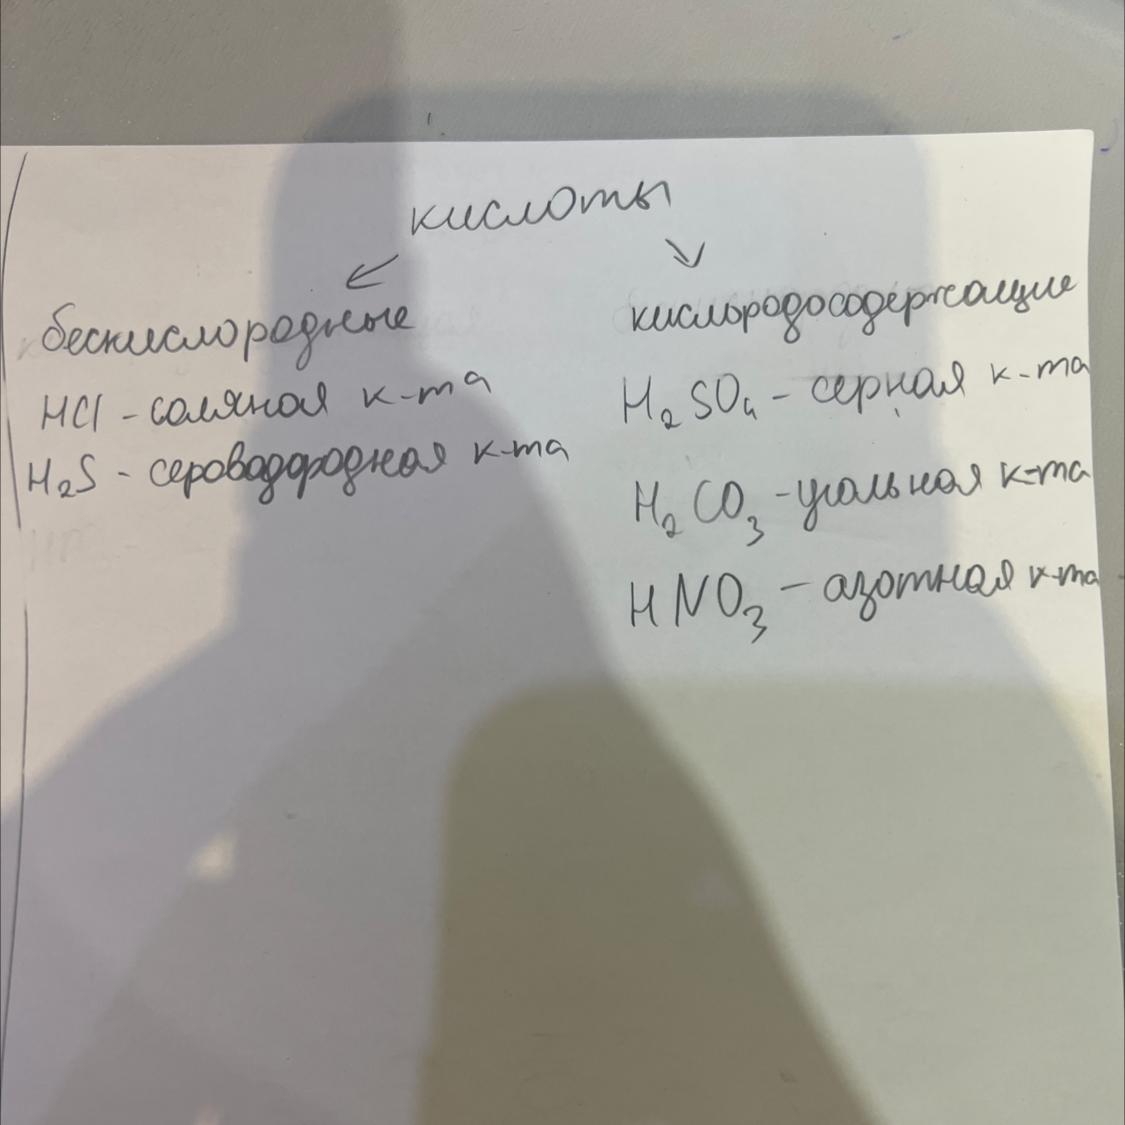 кислоты
бескислородные
HCl - соляная к-та
H₂S - сероводородная к-та
кислородосодержащие
H₂SO₄ - серная к-та
H₂CO₃ - угольная к-та
HNO₃ - азотная к-та